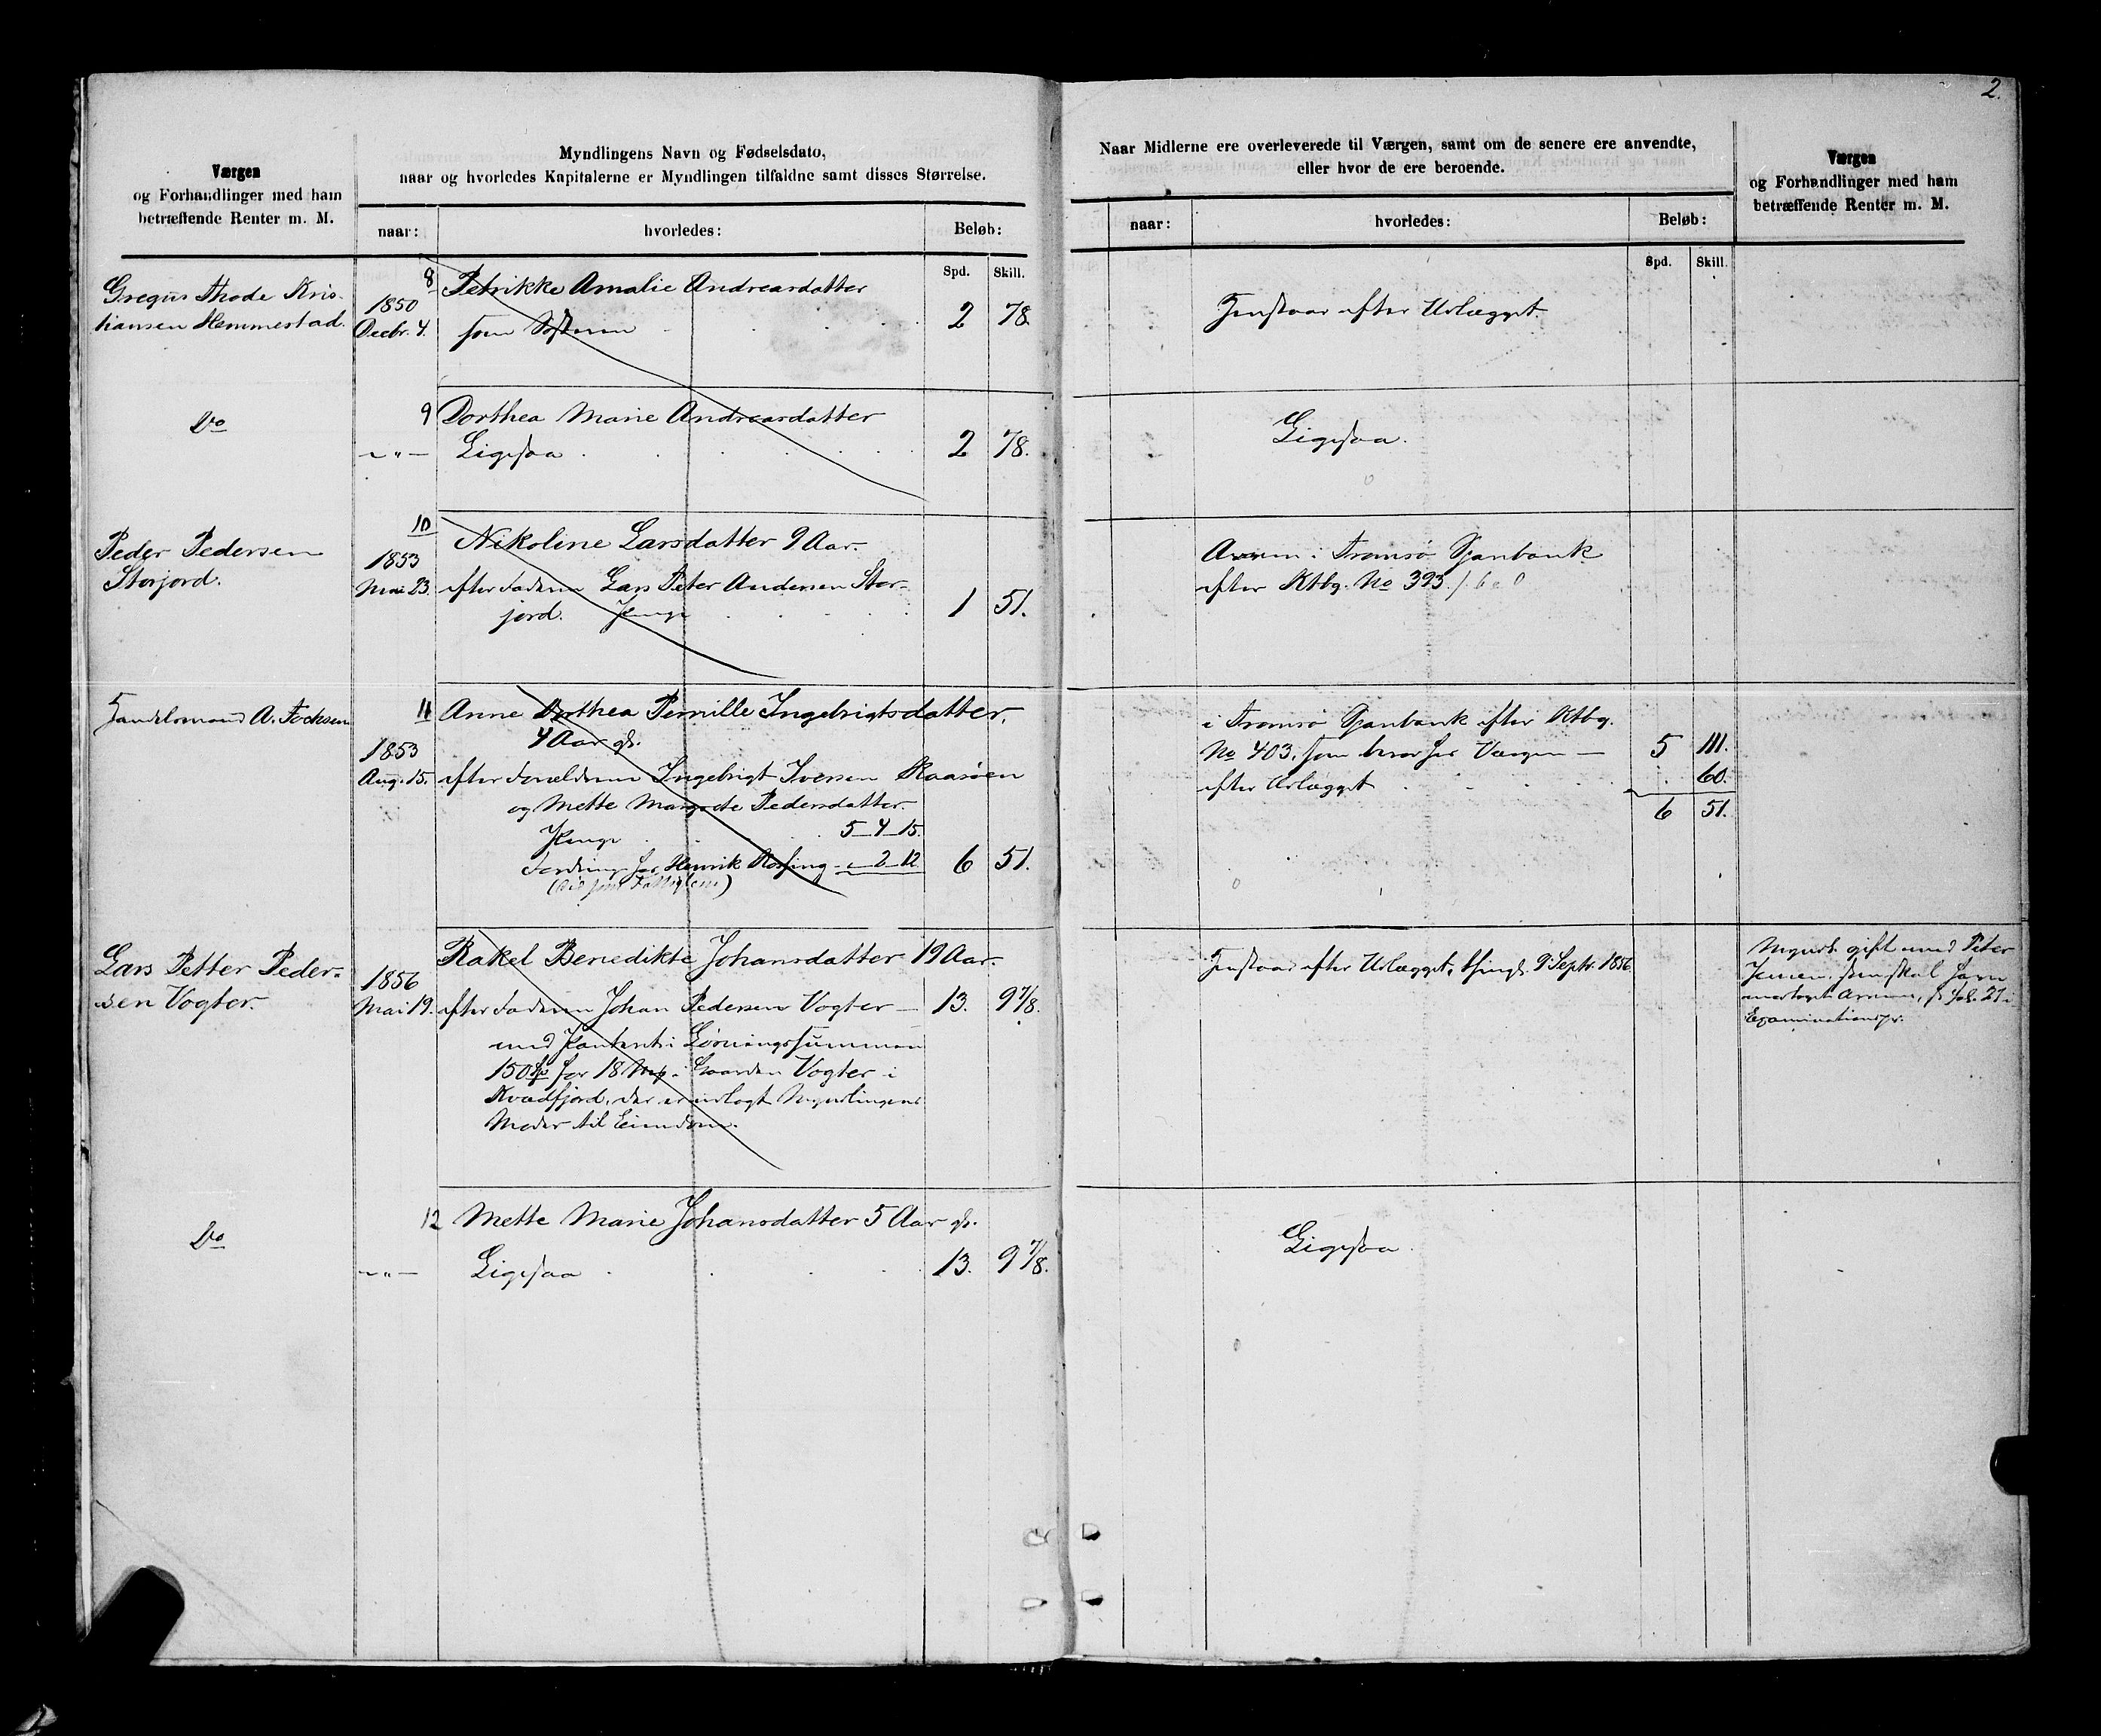 2.
Værgen
og Forhandlinger med ham
betræffende Renter m. M.
Myndlingens Navn og Fødselsdato,
naar og hvorledes Kapitalerne er Myndlingen tilfaldne samt disses Størrelse.
naar:
hvorledes:
Beløb:
Spd. Skill.
Naar Midlerne ere overleverede til Værgen, samt om de senere ere anvendte,
eller hvor de ere beroende.
naar:
hvorledes:
Beløb:
Spd. Skill.
Værgen
og Forhandlinger med ham
betræffende Renter m. M.
Gregus Thode Kris-
tiansen Hemmestad.
1850
Decbr. 4.
8 Petrikke Amalie Andreasdatter
som Søsteren 2 78.
Henstaar efter Udlægget.
Do
9 Dorthea Marie Andreasdatter
– " – Ligesaa 2 78.
Ligesaa.
Peder Pedersen
Storjord.
10
1853
Mai 23.
Nikoline Larsdatter 9 Aar.
efter Faderen Lars Peter Andersen Stor-
jord. Penge 1 51.
i Tromsø Spanbank
efter Ktbg. No 393.
Handelsmand A. Fochsen
11
1853
Aug. 15.
Anne Dorthea Pernille Ingebrigtsdatter,
4 Aar gl.
efter Forældrene Ingebrigt Iversen Raasøen
og Mette Margrete Pedersdatter
Penge 5–4–15.
Fordring hos Henrik – 2–12 6 51.
i Tromsø Spanbank efter Ktbg.
No 403, som beror hos Værgen — 5 111.
efter Udlægget 60.
6 51.
Lars Petter Peder-
sen Vogter.
1856
Mai 19.
Rakel Benedikte Johansdatter 19 Aar.
efter Faderen Johan Pedersen Vogter — 13. 9 7/8.
med Panteret i Løsningssummen
150 for 18 i Gaarden Vogter i
Kvædfjord, der er udlagt Myndlingens
Moder til Eiendom.
Henstaar efter Udlægget, thingl. 9 Septr. 1856.
Myndl. gift med Peter
Jensen, som skal have
modtaget Arven, Fol. 21 i
Examinationspr.
Do
12 Mette Marie Johansdatter 5 Aar gl.
– " – Ligesaa 13. 9 7/8.
Ligesaa.